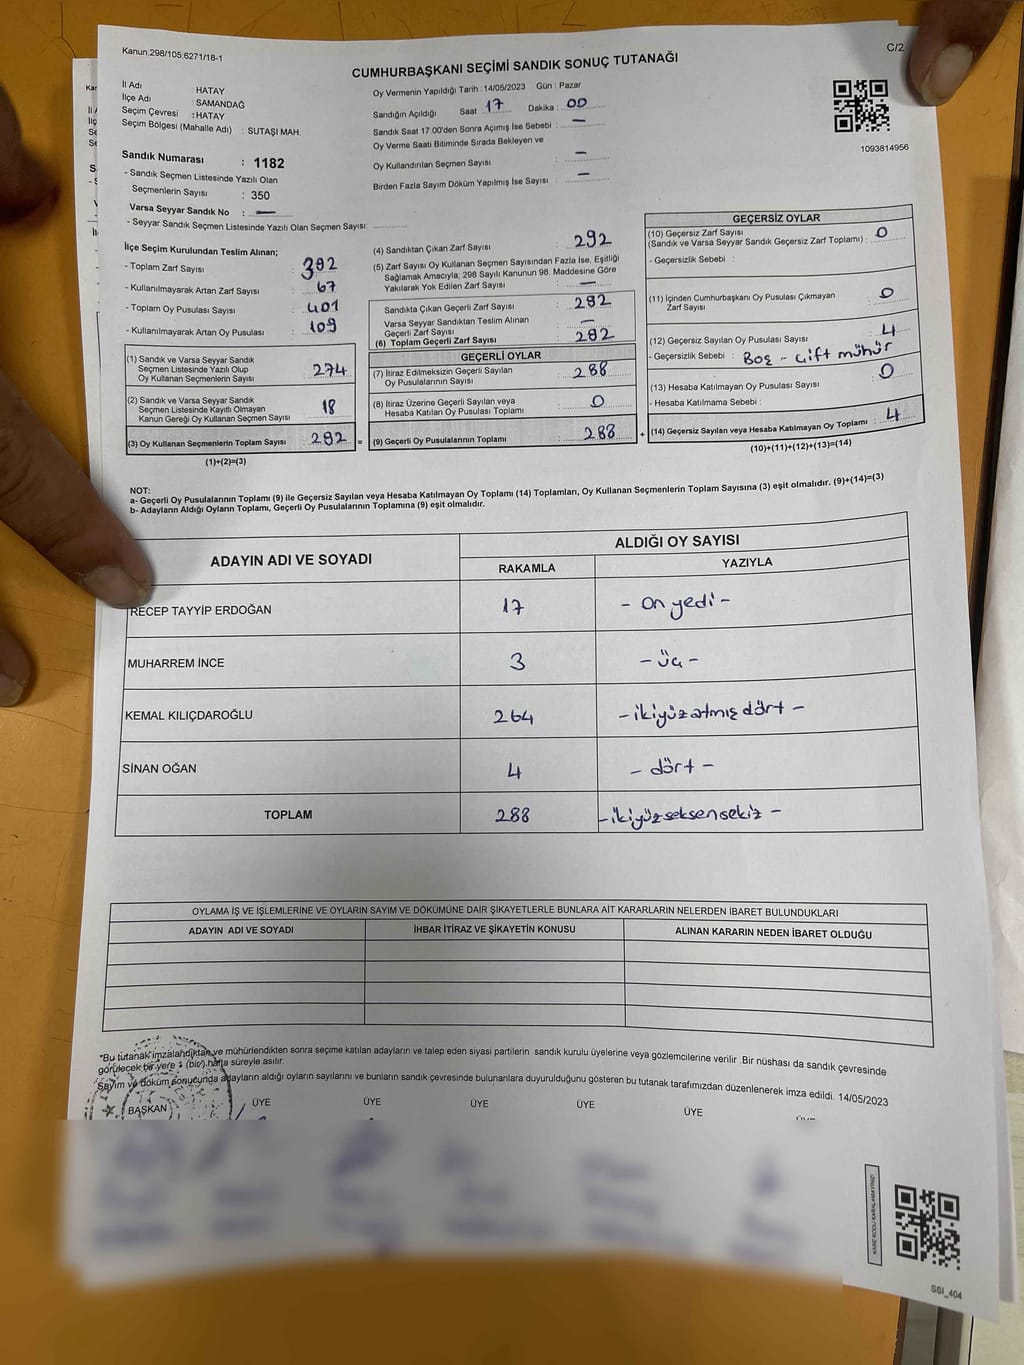 Kanun.298/105,6271/18-1
C/2
CUMHURBAŞKANI SEÇİMİ SANDIK SONUÇ TUTANAĞI
İl Adı : HATAY
İlçe Adı : SAMANDAĞ
Seçim Çevresi : HATAY
Seçim Bölgesi (Mahalle Adı) : SUTAŞI MAH.
Sandık Numarası : 1182
- Sandık Seçmen Listesinde Yazılı Olan
Seçmenlerin Sayısı : 350
Varsa Seyyar Sandık No : —
- Seyyar Sandık Seçmen Listesinde Yazılı Olan Seçmen Sayısı:
Oy Vermenin Yapıldığı Tarih : 14/05/2023 Gün : Pazar
Sandığın Açıldığı Saat 17 Dakika : 00
Sandık Saat 17.00'den Sonra Açımış İse Sebebi : —
Oy Verme Saati Bitiminde Sırada Bekleyen ve
Oy Kullandırılan Seçmen Sayısı : —
Birden Fazla Sayım Döküm Yapılmış İse Sayısı : —
1093814956
İlçe Seçim Kurulundan Teslim Alınan;
- Toplam Zarf Sayısı : 392
- Kullanılmayarak Artan Zarf Sayısı : 67
- Toplam Oy Pusulası Sayısı : 401
- Kullanılmayarak Artan Oy Pusulası : 109
(1) Sandık ve Varsa Seyyar Sandık
Seçmen Listesinde Yazılı Olup
Oy Kullanan Seçmenlerin Sayısı : 274
(2) Sandık ve Varsa Seyyar Sandık
Seçmen Listesinde Kayıtlı Olmayan
Kanun Gereği Oy Kullanan Seçmen Sayısı : 18
(3) Oy Kullanan Seçmenlerin Toplam Sayısı : 292 =
(1)+(2)=(3)
(4) Sandıktan Çıkan Zarf Sayısı : 292
(5) Zarf Sayısı Oy Kullanan Seçmen Sayısından Fazla İse, Eşitliği
Sağlamak Amacıyla; 298 Sayılı Kanunun 98. Maddesine Göre
Yakılarak Yok Edilen Zarf Sayısı : —
Sandıkta Çıkan Geçerli Zarf Sayısı : 292
Varsa Seyyar Sandıktan Teslim Alınan
Geçerli Zarf Sayısı : —
(6) Toplam Geçerli Zarf Sayısı : 292
GEÇERLİ OYLAR
(7) İtiraz Edilmeksizin Geçerli Sayılan
Oy Pusulalarının Sayısı : 288
(8) İtiraz Üzerine Geçerli Sayılan veya
Hesaba Katılan Oy Pusulası Toplamı : 0
(9) Geçerli Oy Pusulalarının Toplamı : 288 +
GEÇERSİZ OYLAR
(10) Geçersiz Zarf Sayısı
(Sandık ve Varsa Seyyar Sandık Geçersiz Zarf Toplamı) : 0
- Geçersizlik Sebebi :
(11) İçinden Cumhurbaşkanı Oy Pusulası Çıkmayan
Zarf Sayısı : 0
(12) Geçersiz Sayılan Oy Pusulası Sayısı : 4
- Geçersizlik Sebebi : Boş - çift mühür
(13) Hesaba Katılmayan Oy Pusulası Sayısı : 0
- Hesaba Katılmama Sebebi :
(14) Geçersiz Sayılan veya Hesaba Katılmayan Oy Toplamı : 4
(10)+(11)+(12)+(13)=(14)
NOT:
a- Geçerli Oy Pusulalarının Toplamı (9) ile Geçersiz Sayılan veya Hesaba Katılmayan Oy Toplamı (14) Toplamları, Oy Kullanan Seçmenlerin Toplam Sayısına (3) eşit olmalıdır. (9)+(14)=(3)
b- Adayların Aldığı Oyların Toplamı, Geçerli Oy Pusulalarının Toplamına (9) eşit olmalıdır.
ADAYIN ADI VE SOYADI ALDIĞI OY SAYISI
RAKAMLA YAZIYLA
RECEP TAYYİP ERDOĞAN 17 - on yedi -
MUHARREM İNCE 3 - üç -
KEMAL KILIÇDAROĞLU 264 - ikiyüzatmış dört -
SİNAN OĞAN 4 - dört -
TOPLAM 288 - ikiyüzseksensekiz -
OYLAMA İŞ VE İŞLEMLERİNE VE OYLARIN SAYIM VE DÖKÜMÜNE DAİR ŞİKAYETLERLE BUNLARA AİT KARARLARIN NELERDEN İBARET BULUNDUKLARI
ADAYIN ADI VE SOYADI İHBAR İTİRAZ VE ŞİKAYETİN KONUSU ALINAN KARARIN NEDEN İBARET OLDUĞU
*Bu tutanak imzalandıktan ve mühürlendikten sonra seçime katılan adayların ve talep eden siyasi partilerin sandık kurulu üyelerine veya gözlemcilerine verilir .Bir nüshası da sandık çevresinde
görülecek bir yere 1 (bir) hafta süreyle asılır.
Sayım ve döküm sonucunda adayların aldığı oyların sayılarını ve bunların sandık çevresinde bulunanlara duyurulduğunu gösteren bu tutanak tarafımızdan düzenlenerek imza edildi. 14/05/2023
BAŞKAN ÜYE ÜYE ÜYE ÜYE ÜYE
KARE KODU KARALAMAYINIZ!
SSI_404